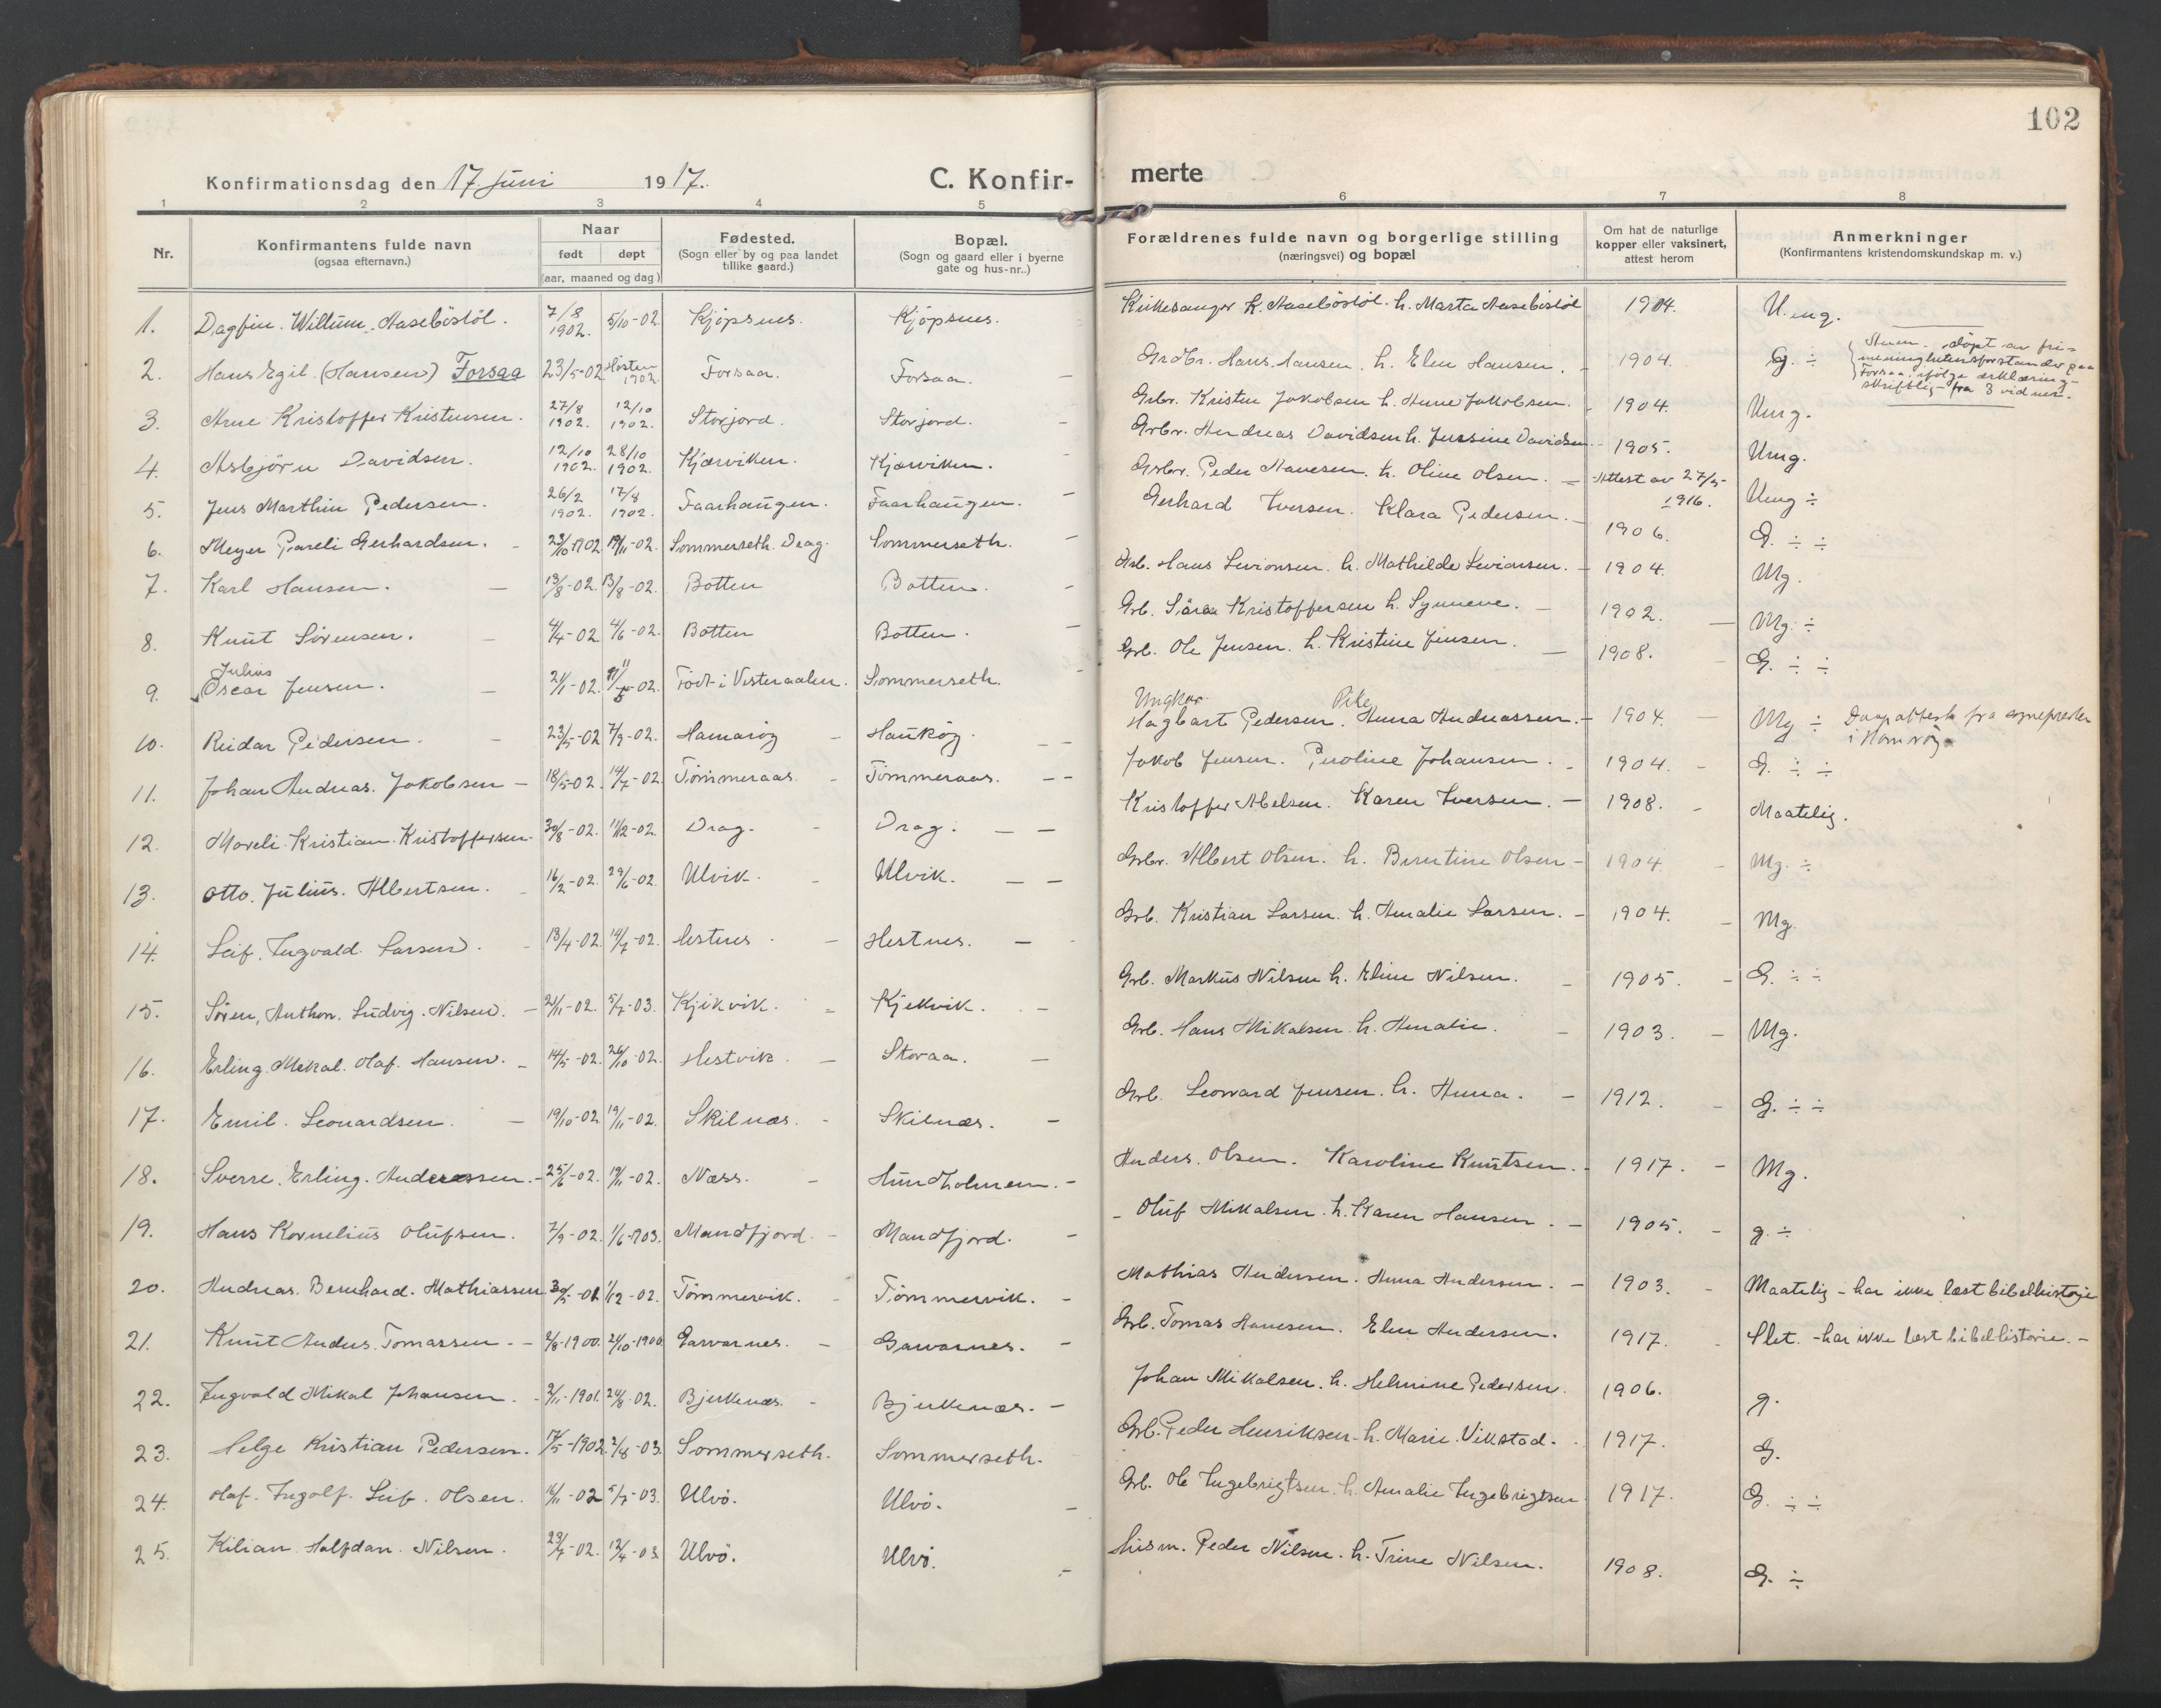 102
Konfirmationsdag den 17 juni 1917. C. Konfir- merte
1 2 3 4 5 6 7 8
Nr. Konfirmantens fulde navn (ogsaa efternavn.) Naar født døpt (aar, maaned og dag) Fødested. (Sogn eller by og paa landet tillike gaard.) Bopæl. (Sogn og gaard eller i byerne gate og hus-nr..) Forældrenes fulde navn og borgerlige stilling (næringsvei) og bopæl Om hat de naturlige kopper eller vaksinert, attest herom Anmerkninger (Konfirmantens kristendomskundskap m. v.)
1. Dagfin. Willum. Aasebøstøl. 7/8 1902. 5/10-02. Kjøpsnes. Kjøpsnes. Kirkesanger K. Aasebøstøl. h. Marta Aasebøstøl 1904. U. mg.
2. Hans Egil. (Hansen) Forsaa 23/5-02 Høsten 1902. Forsaa. Forsaa. Grdbr. Hans Hansen. h. Elen Hansen. 1904. G. ÷ døpt av fri-
menighetsforstander paa
Forsaa ifølge erklæring -
skriftlig - fra 3 vidner.
3. Arne Kristoffer Kristensen. 27/8 1902. 12/10 1902. Storjord. Storjord. Grbr. Kristen Jakobsen h. Anne Jakobsen. 1904. Umg.
4. Asbjørn Davidsen. 12/10 1902. 28/10 1902. Kjærviken. Kjærviken. Grbr. Andreas Davidsen h. Jensine Davidsen 1905. Umg.
5. Jens Marthin Pedersen. 26/2 1902. 17/8 1902. Faarhaugen. Faarhaugen. Grbr. Peder Hansen. h. Oline Olsen. Attest av 27/5-1916. Umg ÷
6. Meyer Pareli Gerhardsen. 23/10 1902 19/11-02. Sommerseth. Drag. Sommerseth. Gerhard Iversen. Klara Pedersen. 1906. G. ÷ ÷
7. Karl Hansen. 13/8-02. 13/8-02. Botten Botten. Grb. Hans Sevionsen. h. Mathilde Sevionsen. 1904. Mg.
8. Knut Sørensen. 4/4-02. 4/6-02. Botten Botten. Grb. Søren Kristoffersen h. Synneve. 1902. Mg. ÷
9. Julius Oscar Jensen. 21/1-02. Født i Vesteraalen. Sommerseth. Grb. Ole Jensen. h. Kristine Jensen. 1908. G. ÷ ÷
10. Reidar Pedersen. 23/5-02 7/9-02. Hamarøy Haukøy. Ungkar Hagbart Pedersen. Pike Anna Andreassen. 1904. Mg ÷ Daapsattest fra sogneprester
i Hamarøy
11. Johan Andreas. Jakobsen 18/5-02. 14/7-02. Tømmeraas. Tømmeraas. Jakob Jensen. Peroline Johansen. 1904. G. ÷ ÷
12. Mareli. Kristian. Kristoffersen 30/8-02. 11/12-02. Drag. Drag. Kristoffer Abelsen. Karen Iversen. 1908. Maatelig.
13. Otto. Julius. Albertsen. 16/2-02. 29/6-02. Ulvik. Ulvik. Grbr. Albert Olsen. h. Berntine Olsen 1904. Mg. ÷
14. Leif. Ingvald. Larsen. 13/4-02. 14/7-02. Hestnes. Hestnes. Grb. Kristian Larsen. h. Amalie Larsen. 1904. Mg.
15. Søren. Anthon. Ludvig. Nilsen. 21/11-02. 5/7-03. Kjikvik. Kjekvik. Grb. Markus Nilsen h. Eline Nilsen. 1905. G. ÷ ÷
16. Erling. Mikal. Olaf. Hansen. 14/5-02. 26/10-02. Hestvik. Storaa. Grb. Hans Mikalsen. h. Amalie. 1903. Mg.
17. Emil. Leonardsen. 19/10-02 19/11-02. Skilnæs. Skilnæs. Grb. Leonard Jensen. h. Anna. 1912. G. ÷ ÷
18. Sverre. Erling. Anderssen. 25/6-02. 19/11-02. Næss. Hundholmen. Anders. Olsen. Karoline Knutsen. 1917. Mg.
19. Hans Kornelius Olufsen. 7/9-02. 1/6-1903. Mandfjord. Mandfjord. Oluf Mikalsen. h. Karen Hansen. 1905. g. ÷
20. Andreas. Bernhard. Mathiassen 1/12-02. Tømmervik. Tømmervik. Mathias Andersen. Anna Andersen. 1903. Maatelig - har ikke læst bibelhistorie
21. Knut Anders. Tomassen. 2/8-1900. 21/10-1900. Garvarnes. Garvarnes. Grb. Tomas Hansen. Elen Andersen. 1917. Slet. - har ikke læst bibelhistorie. -
22. Ingvald Mikal Johansen. 9/11-1901. 24/8-02. Bjerkenæs. Bjerkenæs. Johan Mikalsen. h. Helmine Pedersen. 1906. g.
23. Helge Kristian Pedersen. 17/5-1902. Sommerseth. Sommerseth. Grb. Peder Henriksen. h. Marie. Vikstad. 1917. G.
24. Olaf. Ingolf. Leif. Olsen. 16/11-02 5/7-03. Ulvø. Ulvø. Grb. Ole Ingebrigtsen. h. Amalie Ingebrigtsen 1917. G. ÷ ÷
25. Kilian. Halfdan. Nilsen. 23/7-02. 12/4-03. Ulvø. Ulvø. Husm. Peder Nilsen. h. Trine Nilsen. 1908. G. ÷